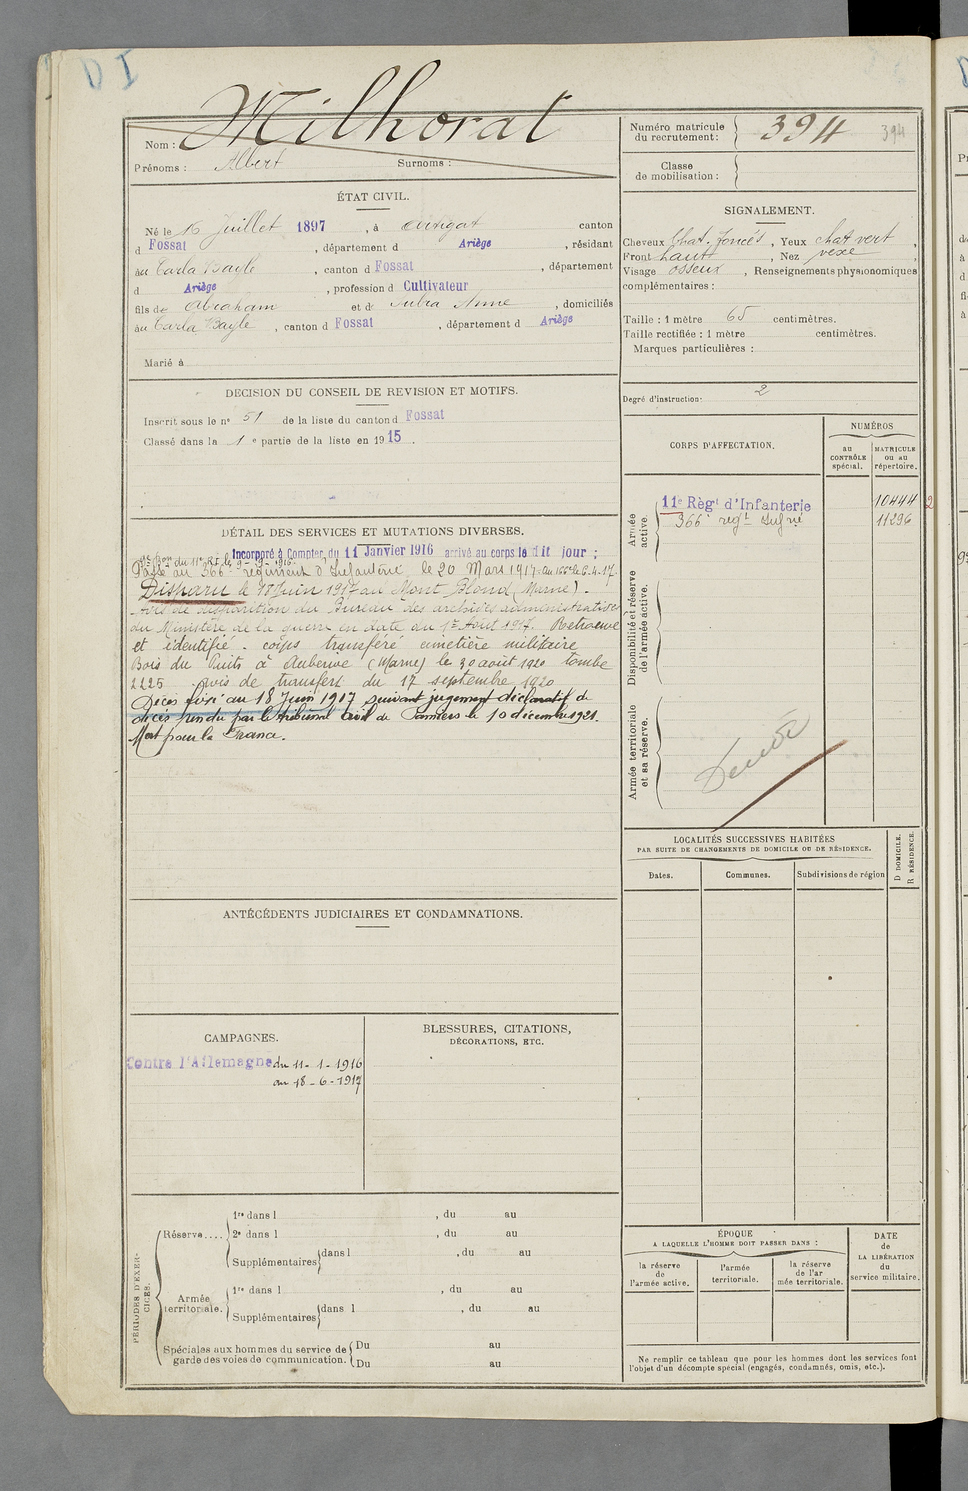 Milhorat
Nom :
Prénoms : Albert Surnoms :
Numéro matricule du recrutement : 394 394
Classe de mobilisation :
ÉTAT CIVIL.
Né le 16 Juillet 1897, à Artigat canton
d Fossat, département d Ariège, résidant
au Carla Bayle, canton d Fossat, département
d Ariège, profession d Cultivateur
fils de Abraham et de Anne, domiciliés
au Carla Bayle, canton d Fossat, département d Ariège
Marié à
SIGNALEMENT.
Cheveux Chat. foncés, Yeux chat vert,
Front haut, Nez vexe,
Visage osseux, Renseignements physionomiques
complémentaires :
Taille : 1 mètre 65 centimètres.
Taille rectifiée : 1 mètre centimètres.
Marques particulières :
Degré d'instruction : 2
DÉCISION DU CONSEIL DE REVISION ET MOTIFS.
Inscrit sous le n° 51 de la liste du canton d Fossat
Classé dans la 1e partie de la liste en 1915.
CORPS D'AFFECTATION.
NUMÉROS
au CONTRÔLE spécial.
MATRICULE ou au répertoire.
Armée active.
11e Règt d'Infanterie 10444
366e regt Infrie 11296
Disponibilité et réserve de l'armée active.
Armée territoriale et sa réserve.
DÉTAIL DES SERVICES ET MUTATIONS DIVERSES.
Incorporé à Compter du 11 Janvier 1916 arrivé au corps le dit jour ;
du 11e R.I. le 9-9-1916.
Passé au 366e régiment d'Infanterie, le 20 Mars 1917.
Disparu le 18 Juin 1917 au Mont Blond (Marne).
Avis de disparition du Bureau des archives administratives
du Ministère de la guerre en date du 1er Août 1917. Retrouvé
et identifié - corps transféré cimetière militaire
Bois du Puits à Auberive (Marne) le 30 août 1920 tombe
2225 avis de transfert du 17 septembre 1920
Décès fixé au 18 Juin 1917 suivant jugement déclaratif de
décès rendu par le tribunal civil de Pamiers le 10 décembre 1921.
Mort pour la France.
LOCALITÉS SUCCESSIVES HABITÉES
PAR SUITE DE CHANGEMENTS DE DOMICILE OU DE RÉSIDENCE.
Dates. Communes. Subdivisions de région
D DOMICILE.
R RÉSIDENCE.
ANTÉCÉDENTS JUDICIAIRES ET CONDAMNATIONS.
CAMPAGNES.
Contre l'Allemagne du 11-1-1916
au 18-6-1917
BLESSURES, CITATIONS,
DÉCORATIONS, ETC.
PÉRIODES D'EXERCICES.
Réserve....
1re dans l , du au
2e dans l , du au
Supplémentaires dans l , du au
Armée territoriale.
1re dans l , du au
Supplémentaires dans l , du au
Spéciales aux hommes du service de garde des voies de communication.
Du au
Du au
ÉPOQUE
A LAQUELLE L'HOMME DOIT PASSER DANS :
la réserve de l'armée active.
l'armée territoriale.
la réserve de l'armée territoriale.
DATE de LA LIBÉRATION du service militaire.
Ne remplir ce tableau que pour les hommes dont les services font
l'objet d'un décompte spécial (engagés, condamnés, omis, etc.).